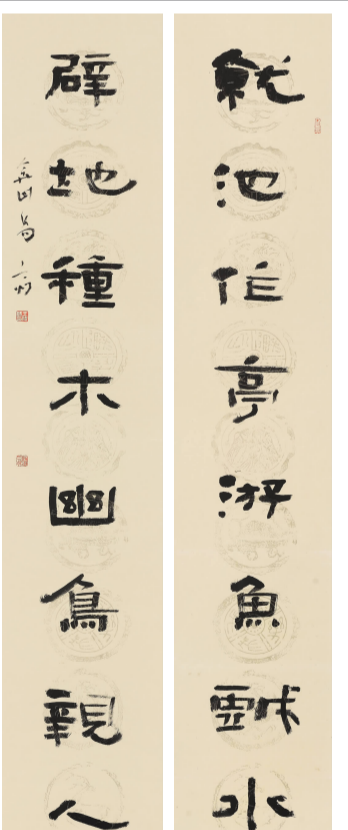 就池作亭游魚戲水
辟地種木幽鳥親人